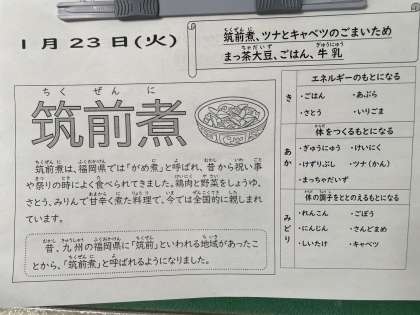 1月23日(火)
筑前煮、ツナとキャベツのごまいため
まっ茶大豆、ごはん、牛乳
筑前煮
筑前煮は、福岡県では「がめ煮」と呼ばれ、昔から祝い事
や祭りの時によく食べられてきました。鶏肉と野菜をしょうゆ、
さとう、みりんで甘辛く煮た料理で、今では全国的に親しまれ
ています。
昔、九州の福岡県に「筑前」といわれる地域があったこ
とから、「筑前煮」と呼ばれるようになりました。
き
エネルギーのもとになる
・ごはん ・あぶら
・さとう ・いりごま
あか
体をつくるもとになる
・ぎゅうにゅう ・けいにく
・けずりぶし ・ツナ(かん)
・まっちゃだいず
みどり
体の調子をととのえるもとになる
・れんこん ・ごぼう
・にんじん ・さんどまめ
・しいたけ ・キャベツ